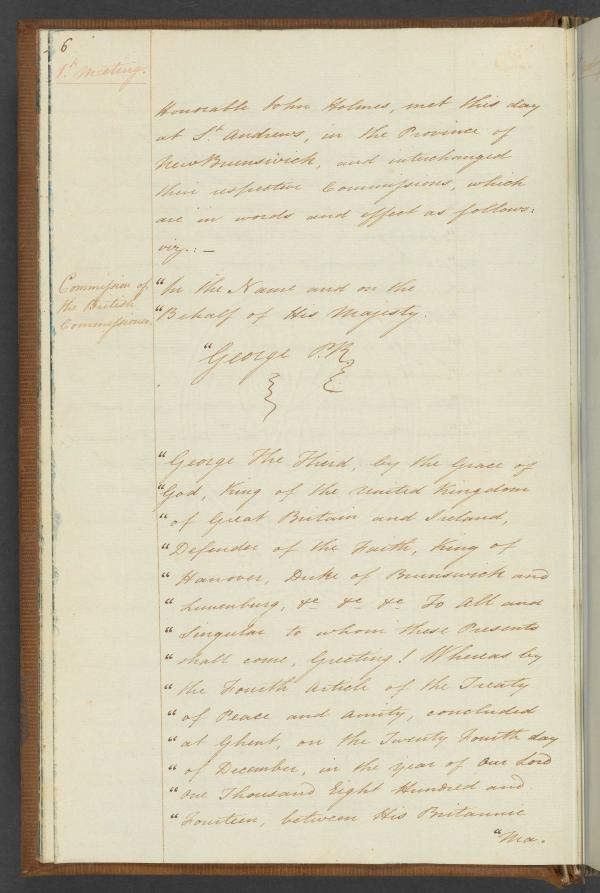 6
1st Meeting.
Honorable John Holmes, met this day
at St Andrews, in the Province of
New Brunswick, and interchanged
their respective Commissions, which
are in words and effect as follows:
viz.: —
Commission of
the British
Commissioner.
"In the Name and on the
"Behalf of His Majesty.
"George P.R
"George the Third, by the Grace of
"God, King of the United Kingdom
"of Great Britain and Ireland,
"Defender of the Faith, King of
"Hanover, Duke of Brunswick and
"Lunenburg, &c &c &c To All and
"Singular to whom these Presents
"shall come, Greeting! Whereas by
"the Fourth Article of the Treaty
"of Peace and Amity, concluded
"at Ghent, on the Twenty Fourth day
"of December, in the year of Our Lord
"One Thousand Eight Hundred and
"Fourteen, between His Britannic
"Ma.